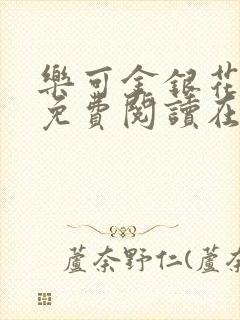 樂可金銀花
免費閱讀在
蘆奈野仁(蘆奈